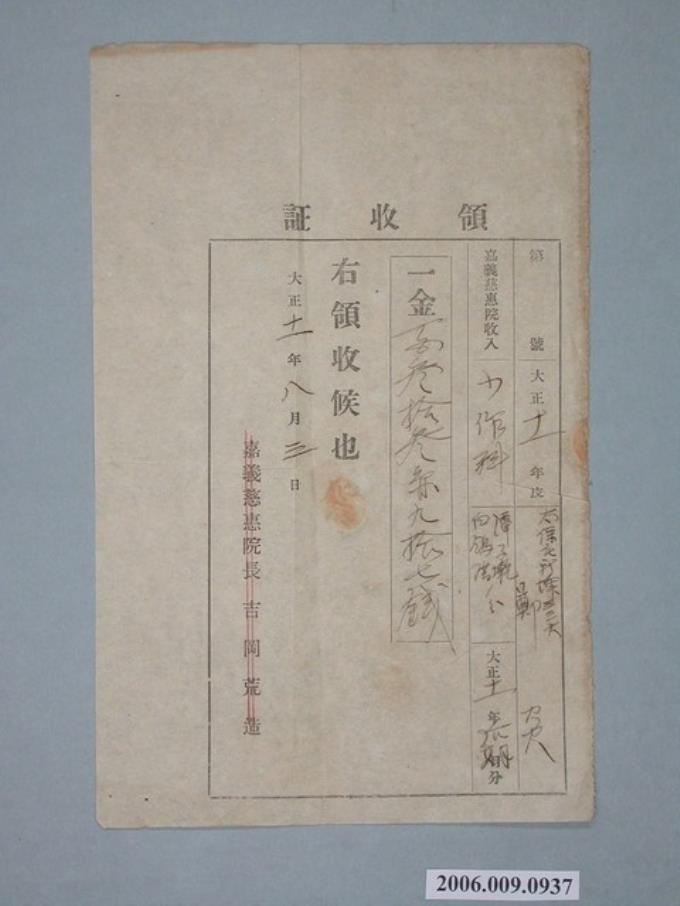 領收証
第 號 大正十一年度
嘉義慈惠院收入 小作料
大正十一年 分
一金百參拾參円九拾七錢
右領收候也
大正十一年八月三日
嘉義慈惠院長 吉岡荒造
2006.009.0937